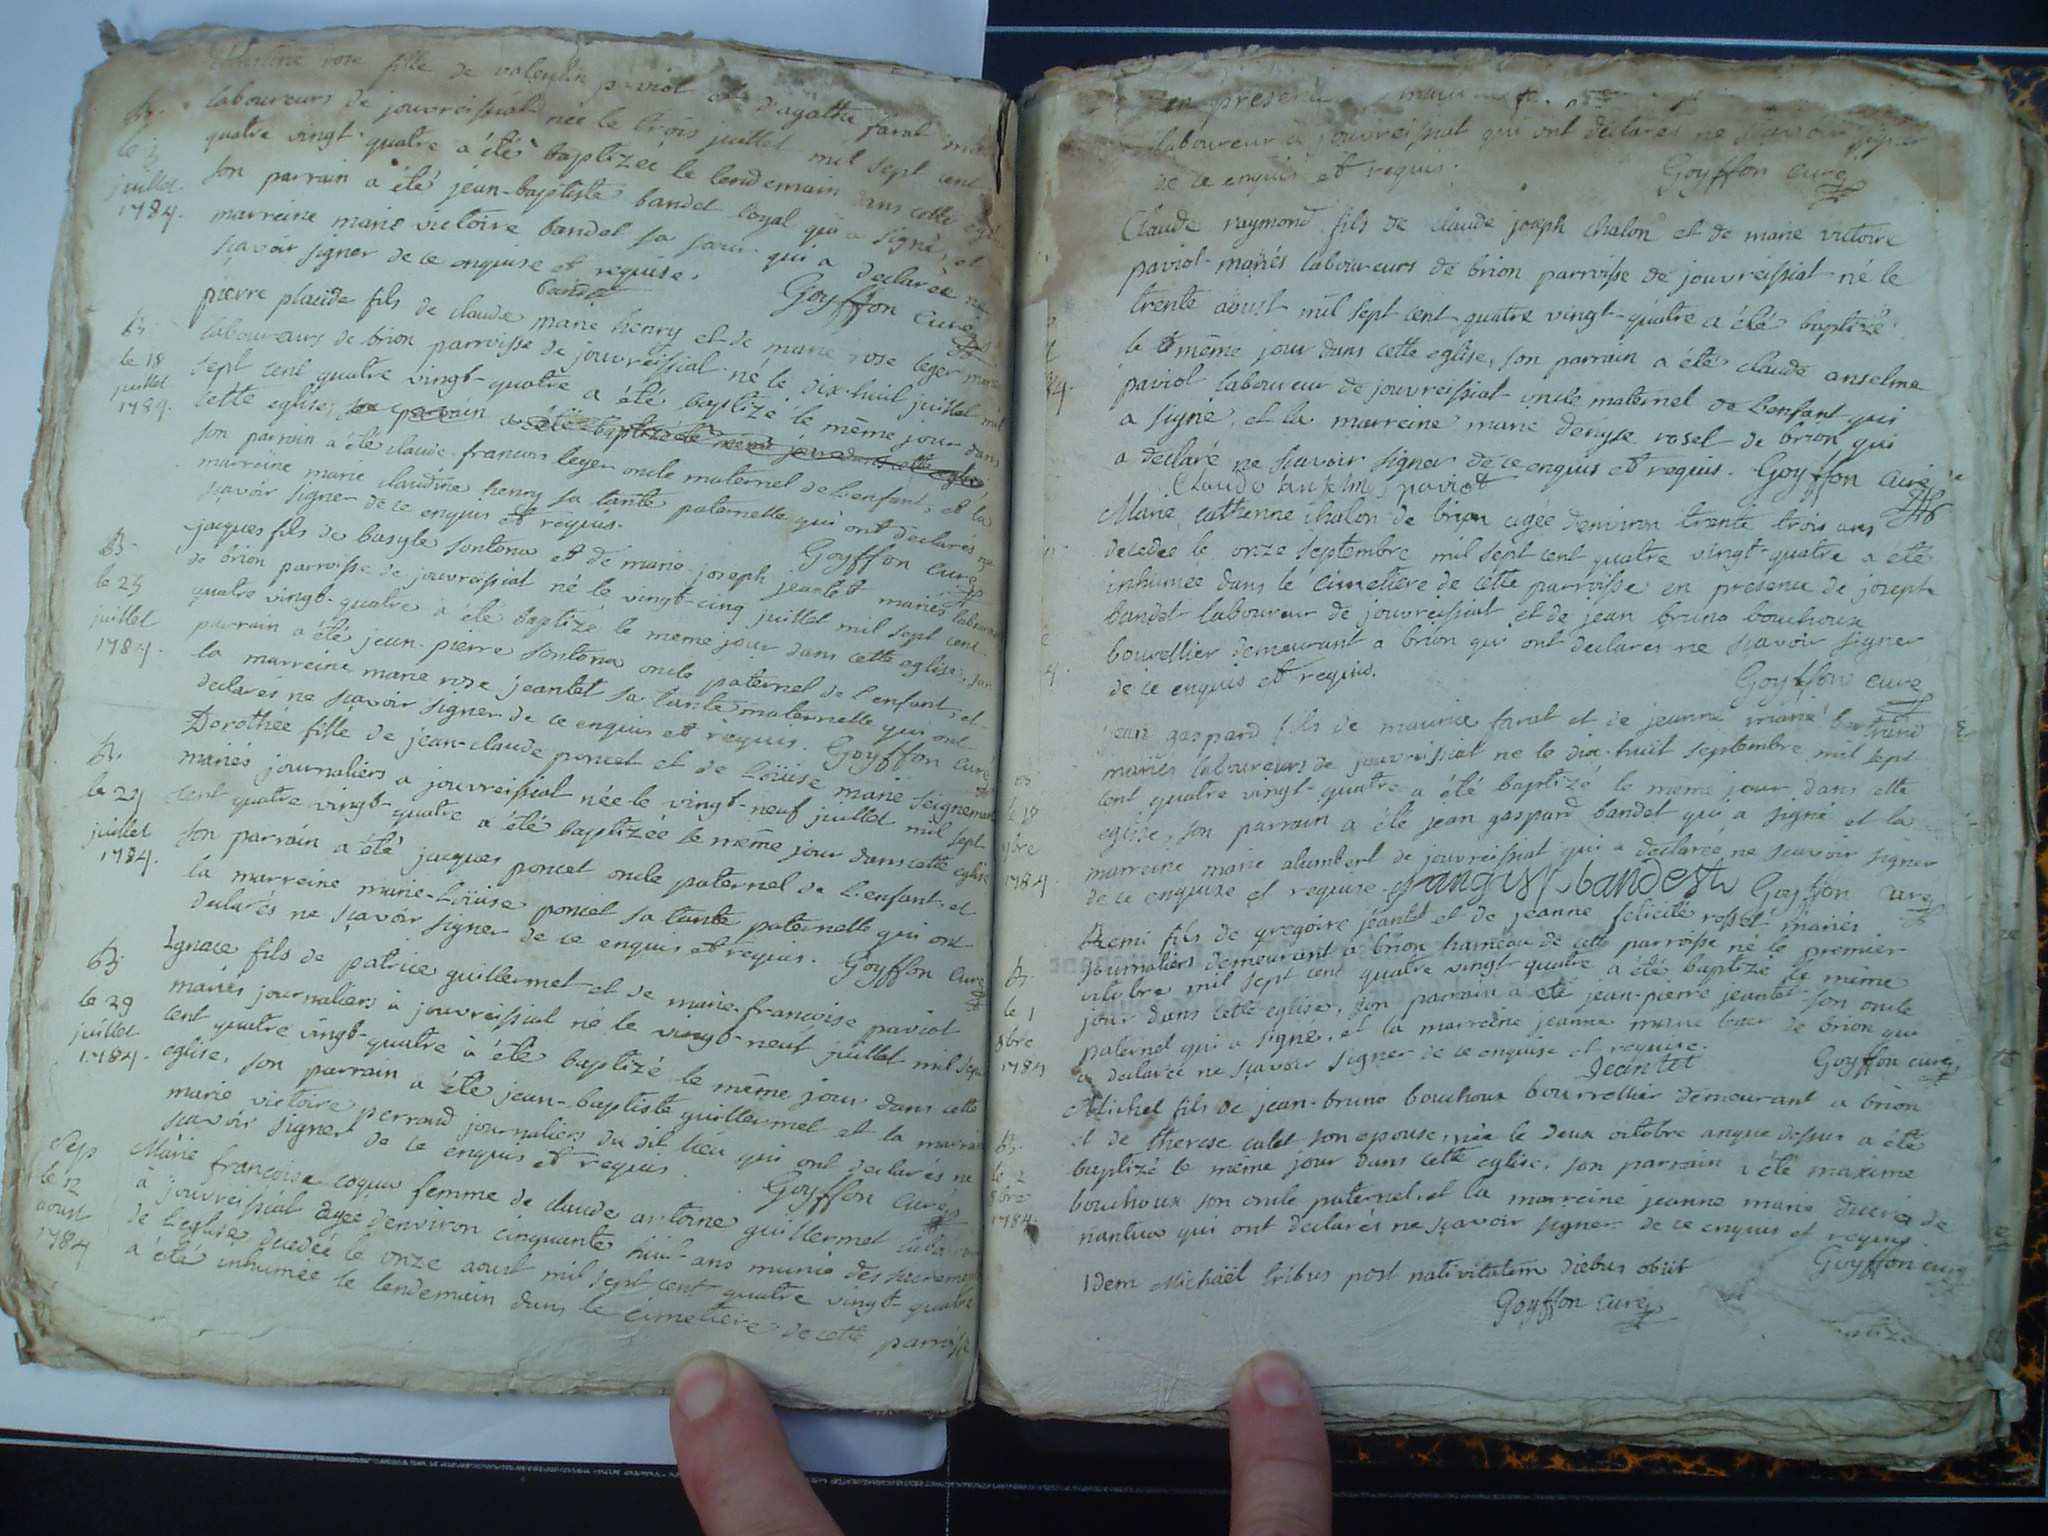 rose fille de valentin paviot et d'agathe farat mariés
B. laboureurs de jouvreissiat née le trois juillet mil sept cent
le 3 quatre vingt-quatre a été baptizée le lendemain dans cette eglise
juillet son parrain a été jean-baptiste bandet loyal qui a signé, et
1784. marreine marie victoire bandet sa soeur qui a declarée ne
sçavoir signer de ce enquise et requise.
bandet Goyffon curé
pierre placide fils de claude marie henry et de marie rose leger mariés
B. laboureurs de brion parroisse de jouvreissiat né le dix-huit juillet mil
le 18 sept cent quatre vingt-quatre a été baptizé le même jour dans
juillet cette eglise, son parrain a été baptizé le même jour dans cette eglise
1784. son parrain a été claude francois leger oncle maternel de l'enfant, et la
marreine marie claudine henry sa tante paternelle qui ont declarés ne
sçavoir signer de ce enquis et requis. Goyffon curé
jacques fils de basyle sontona et de marie joseph jeantet mariés laboureurs
B. de brion parroisse de jouvreissiat né le vingt-cinq juillet mil sept cent
le 25 quatre vingt-quatre a été baptizé le même jour dans cette eglise, son
juillet parrain a été jean-pierre sontona oncle paternel de l'enfant, et
1784. la marreine marie rose jeantet sa tante maternelle qui ont
declarés ne sçavoir signer de ce enquis et requis. Goyffon curé
Dorothée fille de jean-claude poncet et de Loüise marie seignemart
B. mariés journaliers a jouvreissiat née le vingt-neuf juillet mil sept
le 29 cent quatre vingt-quatre a été baptizée le même jour dans cette eglise
juillet son parrain a été jacques poncet oncle paternel de l'enfant, et
1784. la marreine marie-Loüise poncet sa tante paternelle qui ont
declarés ne sçavoir signer de ce enquis et requis. Goyffon curé
Ignace fils de patrice guillermet et de marie-francoise paviot
B. mariés journaliers à jouvreissiat né le vingt-neuf juillet mil sept
le 29 cent quatre vingt-quatre a été baptizé le même jour dans cette
juillet eglise, son parrain a été jean-baptiste guillermet et la marreine
1784. marie victoire perraud journaliers du dit lieu qui ont declarés ne
sçavoir signer de ce enquis et requis Goyffon curé
Sep Marie francoise coquu femme de claude antoine guillermet laboureur
le 12 à jouvreissiat agée d'environ cinquante huit ans munie des sacremens
aoust de l'eglise decedée le onze aoust mil sept cent quatre vingt-quatre
1784 a été inhumée le lendemain dans le cimetiere de cette parroisse
en presence
laboureur a jouvreissiat qui ont declarés ne sçavoir signer
de ce enquis et requis. Goyffon curé
Claude raymond fils de claude joseph chalon et de marie victoire
paviot mariés laboureurs de brion parroisse de jouvreissiat né le
trente aoust mil sept cent quatre vingt-quatre a été baptizé
le même jour dans cette eglise, son parrain a été claude anselme
84. paviot laboureur de jouvreissiat oncle maternel de l'enfant qui
a signé, et la marreine marie denyse rosel de brion qui
a declaré ne sçavoir signer de ce enquis et requis. Goyffon curé
Claude anselme paviot
Marie catherine chalon de brion agée denviron trente trois ans
decedée le onze septembre mil sept cent quatre vingt-quatre a été
inhumée dans le cimetiere de cette parroisse en presence de joseph
bandet laboureur de jouvreissiat et de jean bruno bouchoux
bourellier demeurant a brion qui ont declares ne sçavoir signer
4 de ce enquis et requis. Goyffon curé
jean gaspard fils de maurice farat et de jeanne marie bertrand
mariés laboureurs de jouvreissiat né le dix-huit septembre mil sept
le 18 cent quatre vingt-quatre a été baptizé le même jour dans cette
eglise, son parrain a été jean gaspard bandet qui a signé et la
7bre marreine marie alumbert de jouvreissiat qui a declarée ne sçavoir signer
1784 de ce enquise et requise. bandest Goyffon curé
Remi fils de gregoire jeantet et de jeanne felicité rosset mariés
B. journaliers demeurant a brion hameau de cette parroisse né le premier
octobre mil sept cent quatre vingt-quatre a été baptizé le même
le 1 jour dans cette eglise, son parrain a été jean-pierre jeantet son oncle
8bre paternel qui a signé, et la marreine jeanne marie de brion qui
1784 a declarée ne sçavoir signer de ce enquise et requise.
Jeantet Goyffon curé
Michel fils de jean-bruno bouchoux bourrellier demeurant a brion
B. et de therese calet son epouse, née le deux octobre an que dessus a été
le 2 baptizé le même jour dans cette eglise, son parrain a été maxime
8bre bouchoux son oncle paternel, et la marreine jeanne marie ducret de
1784. nantua qui ont declarés ne sçavoir signer de ce enquis et requis.
Goyffon curé
Idem Michaël tribus post nativitatem diebus obiit
Goyffon curé